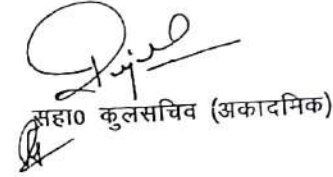 सहा0 कुलसचिव (अकादमिक)